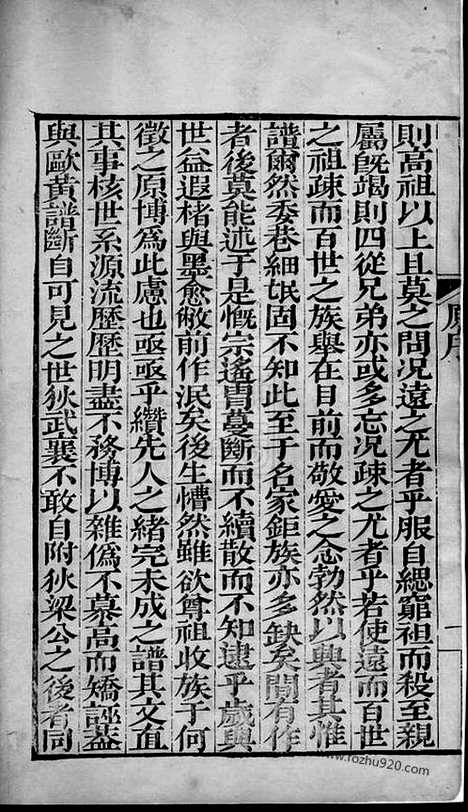 則高祖以上且莫之問况遠之尤者乎服自緦竆袒而殺至親
屬旣竭則四從兄弟亦或多忘况疎之尤者乎若使遠而百世
之祖疎而百世之族舉在目前而敬愛之念勃然以興者其惟
譜爾然委巷細氓固不知此至于名家鉅族亦多缺矣間有作
者後莫能述于是慨宗遙胄蔓斷而不續散而不知逮乎歲與
世益遐楮與墨愈敝前作泯矣後生懵然雖欲尊祖收族于何
徵之原博爲此慮也亟亟乎纘先人之緒完未成之譜其文直
其事核世系源流歷歷明盡不務博以雜僞不慕高而矯誣葢
與歐黄譜斷自可見之世狄武襄不敢自附狄梁公之後者同
原序
一
www.rozhu920.com